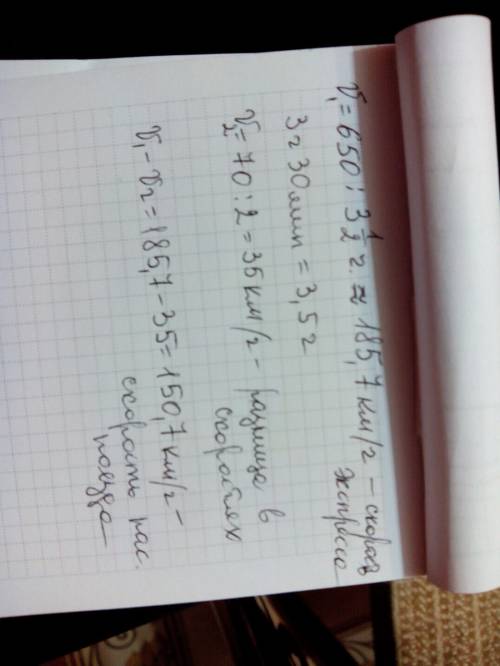 V₁ = 650 : 3 1/2 ч. ≈ 185,7 км/ч – скорость
экспресса
3 ч 30 мин = 3,5 ч
V₂ = 70 : 2 = 35 км/ч – разница в
скоростях
V₁ - V₂ = 185,7 - 35 = 150,7 км/ч –
скорость пас.
поезда